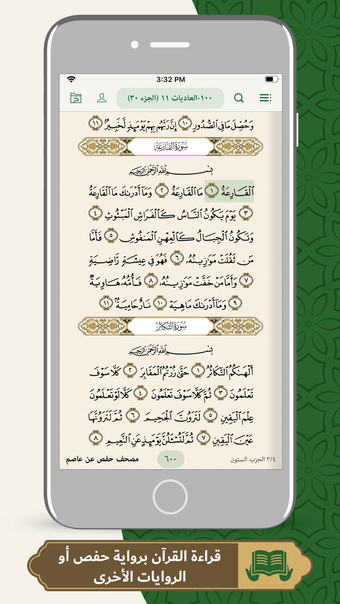 3:32 PM
١٠٠-العاديات ١١ (الجزء ٣٠)
وَحُصِّلَ مَا فِي ٱلصُّدُورِ ١٠ إِنَّ رَبَّهُم بِهِمۡ يَوۡمَئِذٖ لَّخَبِيرُۢ ١١
سُورَةُ القَارِعَةِ
بِسۡمِ ٱللَّهِ ٱلرَّحۡمَٰنِ ٱلرَّحِيمِ
ٱلۡقَارِعَةُ ١ مَا ٱلۡقَارِعَةُ ٢ وَمَآ أَدۡرَىٰكَ مَا ٱلۡقَارِعَةُ
٣ يَوۡمَ يَكُونُ ٱلنَّاسُ كَٱلۡفَرَاشِ ٱلۡمَبۡثُوثِ ٤
وَتَكُونُ ٱلۡجِبَالُ كَٱلۡعِهۡنِ ٱلۡمَنفُوشِ ٥ فَأَمَّا
مَن ثَقُلَتۡ مَوَٰزِينُهُۥ ٦ فَهُوَ فِي عِيشَةٖ رَّاضِيَةٖ
٧ وَأَمَّا مَنۡ خَفَّتۡ مَوَٰزِينُهُۥ ٨ فَأُمُّهُۥ هَاوِيَةٞ
٩ وَمَآ أَدۡرَىٰكَ مَا هِيَهۡ ١٠ نَارٌ حَامِيَةُۢ ١١
سُورَةُ التَّكَاثُرِ
بِسۡمِ ٱللَّهِ ٱلرَّحۡمَٰنِ ٱلرَّحِيمِ
أَلۡهَىٰكُمُ ٱلتَّكَاثُرُ ١ حَتَّىٰ زُرۡتُمُ ٱلۡمَقَابِرَ ٢ كَلَّا سَوۡفَ
تَعۡلَمُونَ ٣ ثُمَّ كَلَّا سَوۡفَ تَعۡلَمُونَ ٤ كَلَّا لَوۡ تَعۡلَمُونَ
عِلۡمَ ٱلۡيَقِينِ ٥ لَتَرَوُنَّ ٱلۡجَحِيمَ ٦ ثُمَّ لَتَرَوُنَّهَا
عَيۡنَ ٱلۡيَقِينِ ٧ ثُمَّ لَتُسۡـَٔلُنَّ يَوۡمَئِذٍ عَنِ ٱلنَّعِيمِ ٨
٣/٤ الحزب الستون ٦٠٠ مصحف حفص عن عاصم
قراءة القرآن برواية حفص أو
الروايات الأخرى